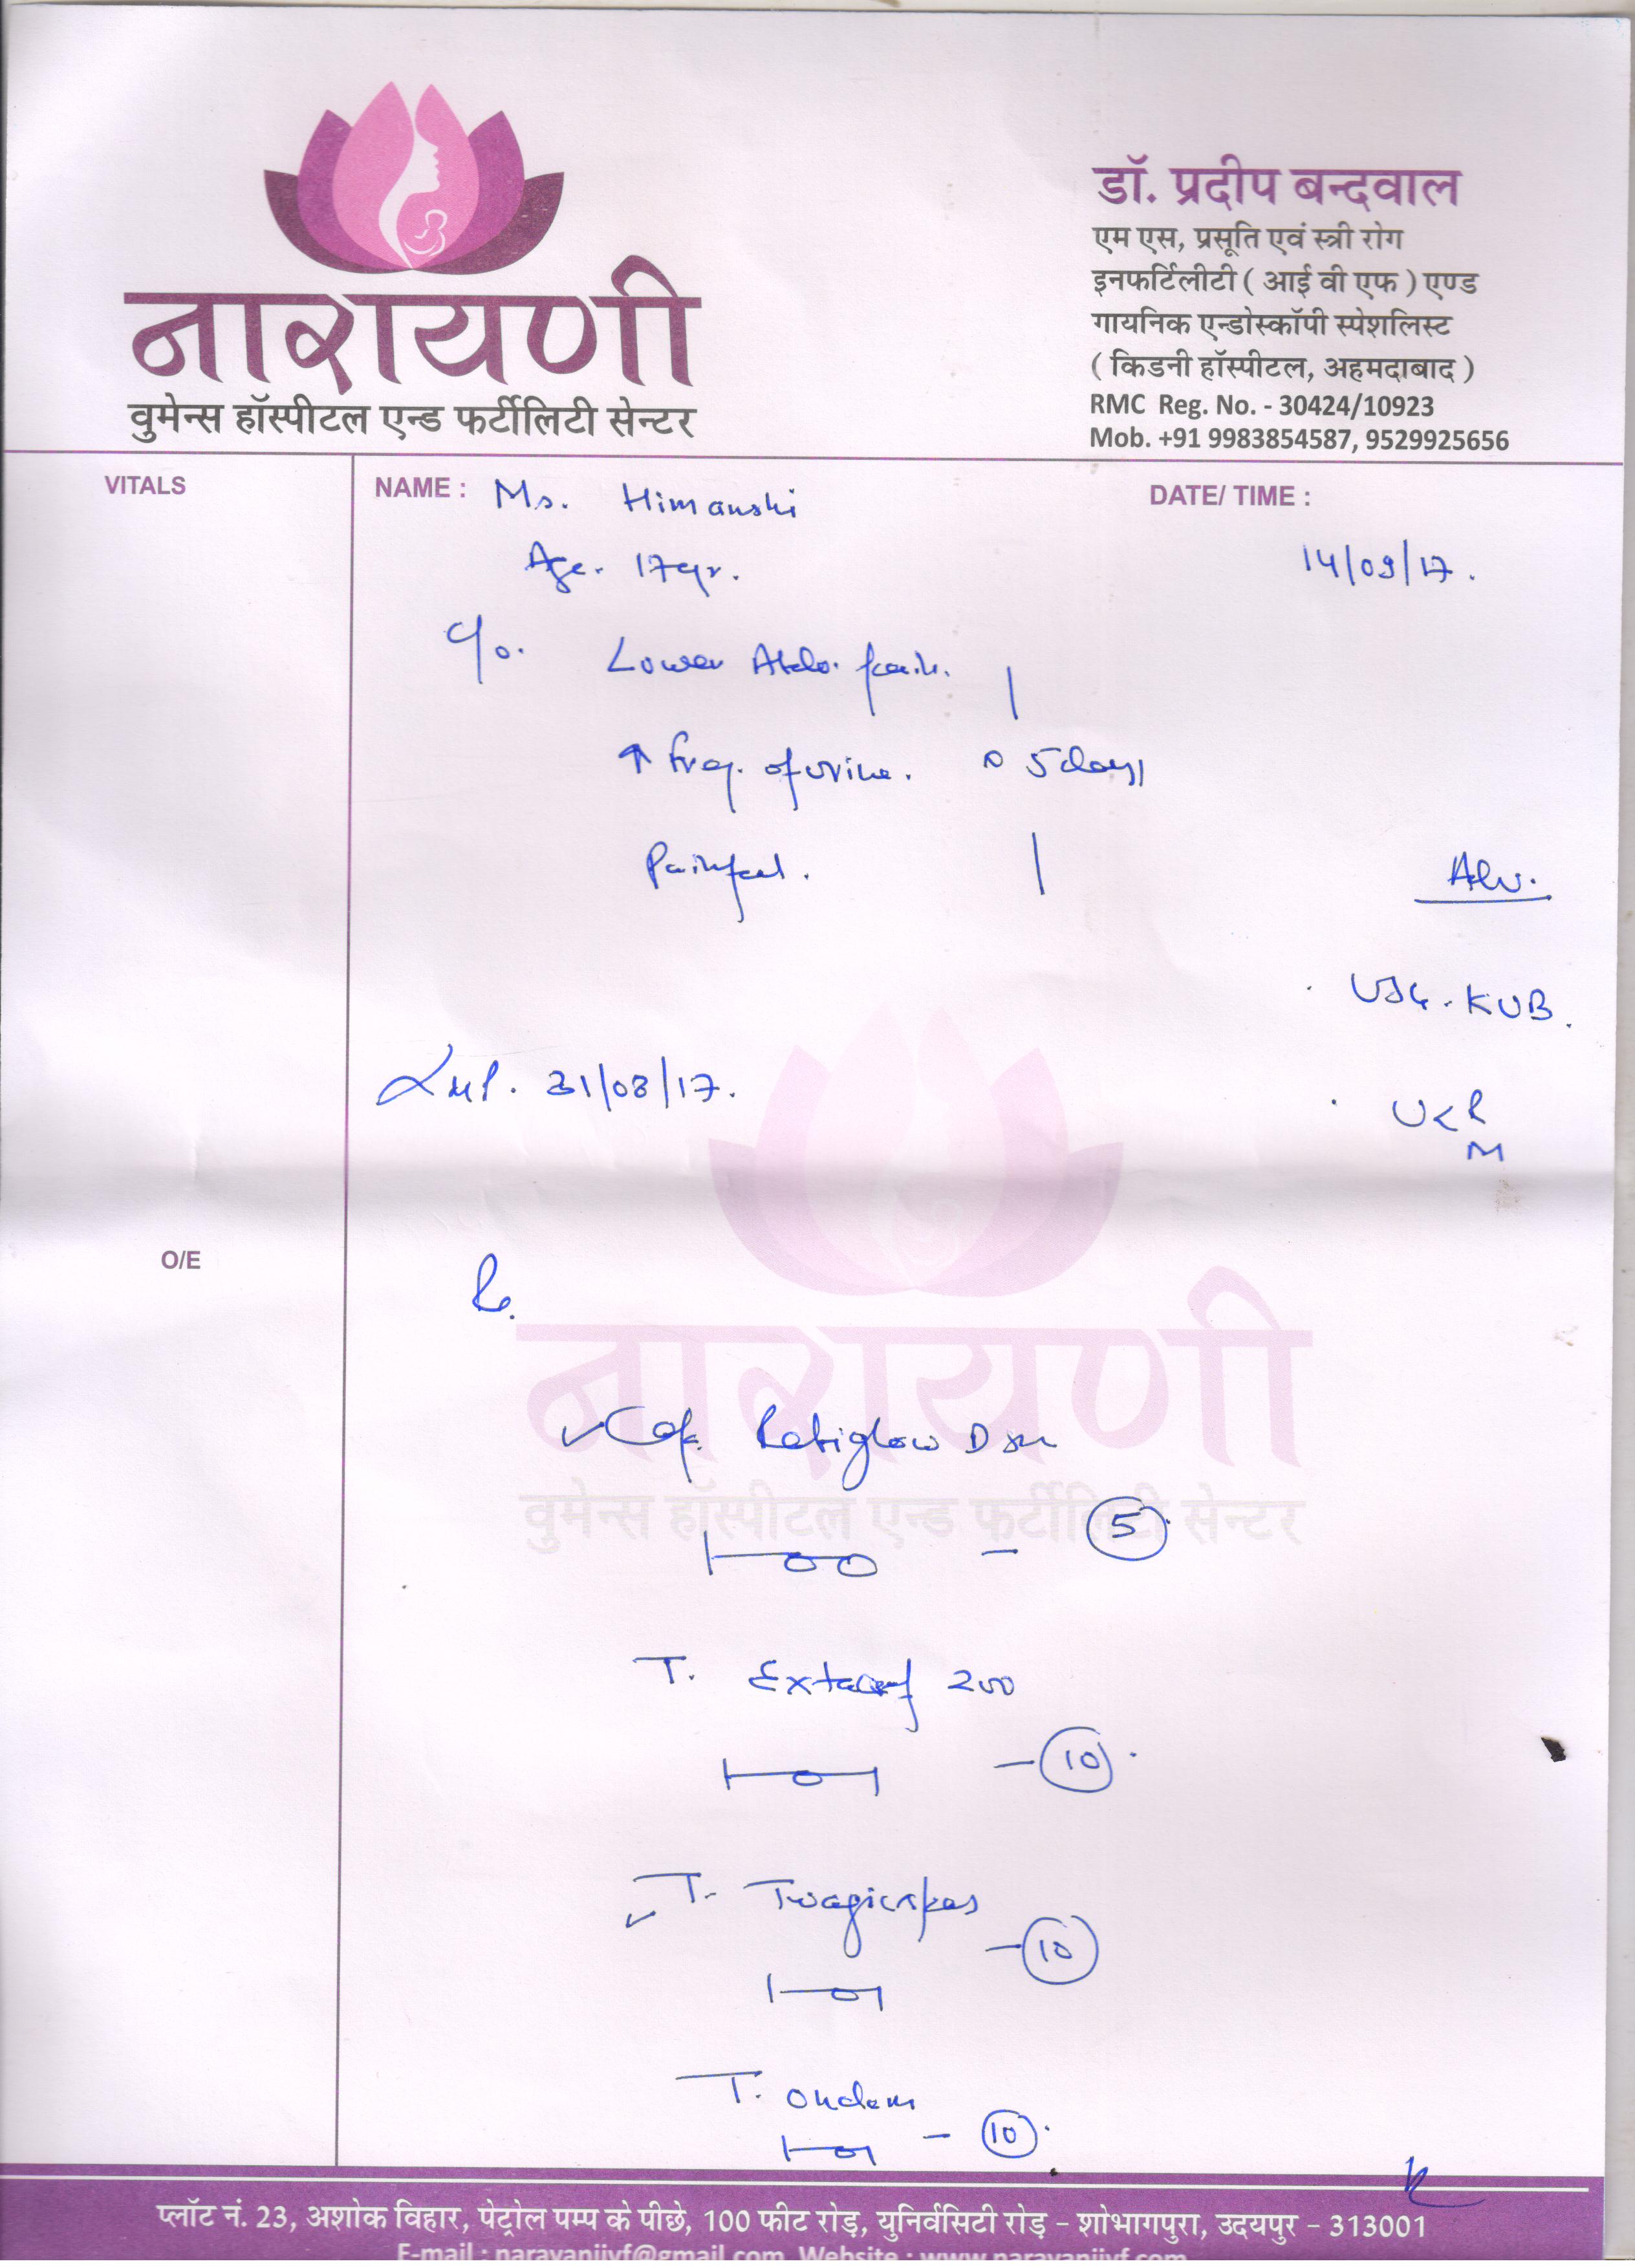 नारायणी
वुमेन्स हॉस्पीटल एन्ड फर्टीलिटी सेन्टर
डॉ. प्रदीप बन्दवाल
एम एस, प्रसूति एवं स्त्री रोग
इनफर्टिलीटी ( आई वी एफ ) एण्ड
गायनिक एन्डोस्कॉपी स्पेशलिस्ट
( किडनी हॉस्पीटल, अहमदाबाद )
RMC Reg. No. - 30424/10923
Mob. +91 9983854587, 9529925656
VITALS
NAME : Ms. Himanshi
DATE/ TIME :
Age. 17yr.
14/09/17.
C/o. Lower Abdo. pain.
↑ freq. of urine. 5 days
Painful.
Adv.
USG. KUB.
LMP. 31/08/17.
U < R
M
नारायणी
वुमेन्स हॉस्पीटल एन्ड फर्टीलिटी सेन्टर
O/E
Rx.
Cap. Rabiglow DSR
1—00 — 5
T. 200
1—0—1 — 10
T.
1—01 — 10
T. Ondem
1—01 — 10
प्लॉट नं. 23, अशोक विहार, पेट्रोल पम्प के पीछे, 100 फीट रोड़, युनिर्वसिटी रोड़ – शोभागपुरा, उदयपुर – 313001
E-mail : narayaniivf@gmail.com Website : www.narayaniivf.com